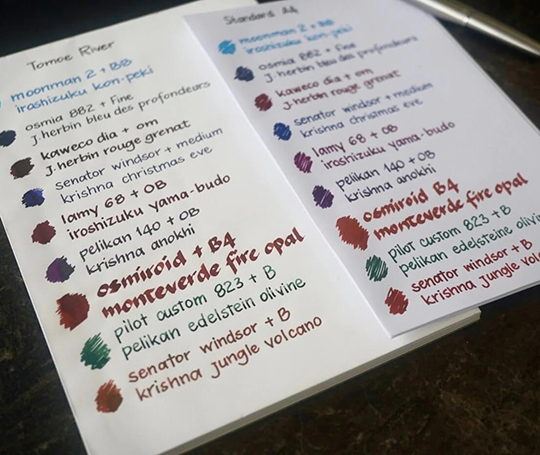 Tomoe River
moonman 2 + BB
iroshizuku kon-peki
osmia 882 + Fine
J.herbin bleu des profondeurs
kaweco dia + om
J.herbin rouge grenat
senator windsor + medium
krishna christmas eve
lamy 68 + OB
iroshizuku yama-budo
pelikan 140 + OB
krishna anokhi
osmiroid + B4
monteverde fire opal
pilot custom 823 + B
pelikan edelstein olivine
senator windsor + B
krishna jungle volcano
Standard A4
moonman 2 + BB
iroshizuku kon-peki
osmia 882 + Fine
J.herbin bleu des profondeurs
kaweco dia + om
J.herbin rouge grenat
senator windsor + medium
krishna christmas eve
lamy 68 + OB
iroshizuku yama-budo
pelikan 140 + OB
krishna anokhi
osmiroid B4
monteverde fire opal
pilot custom 823 + B
pelikan edelsteine
senator windsor + B
krishna jungle